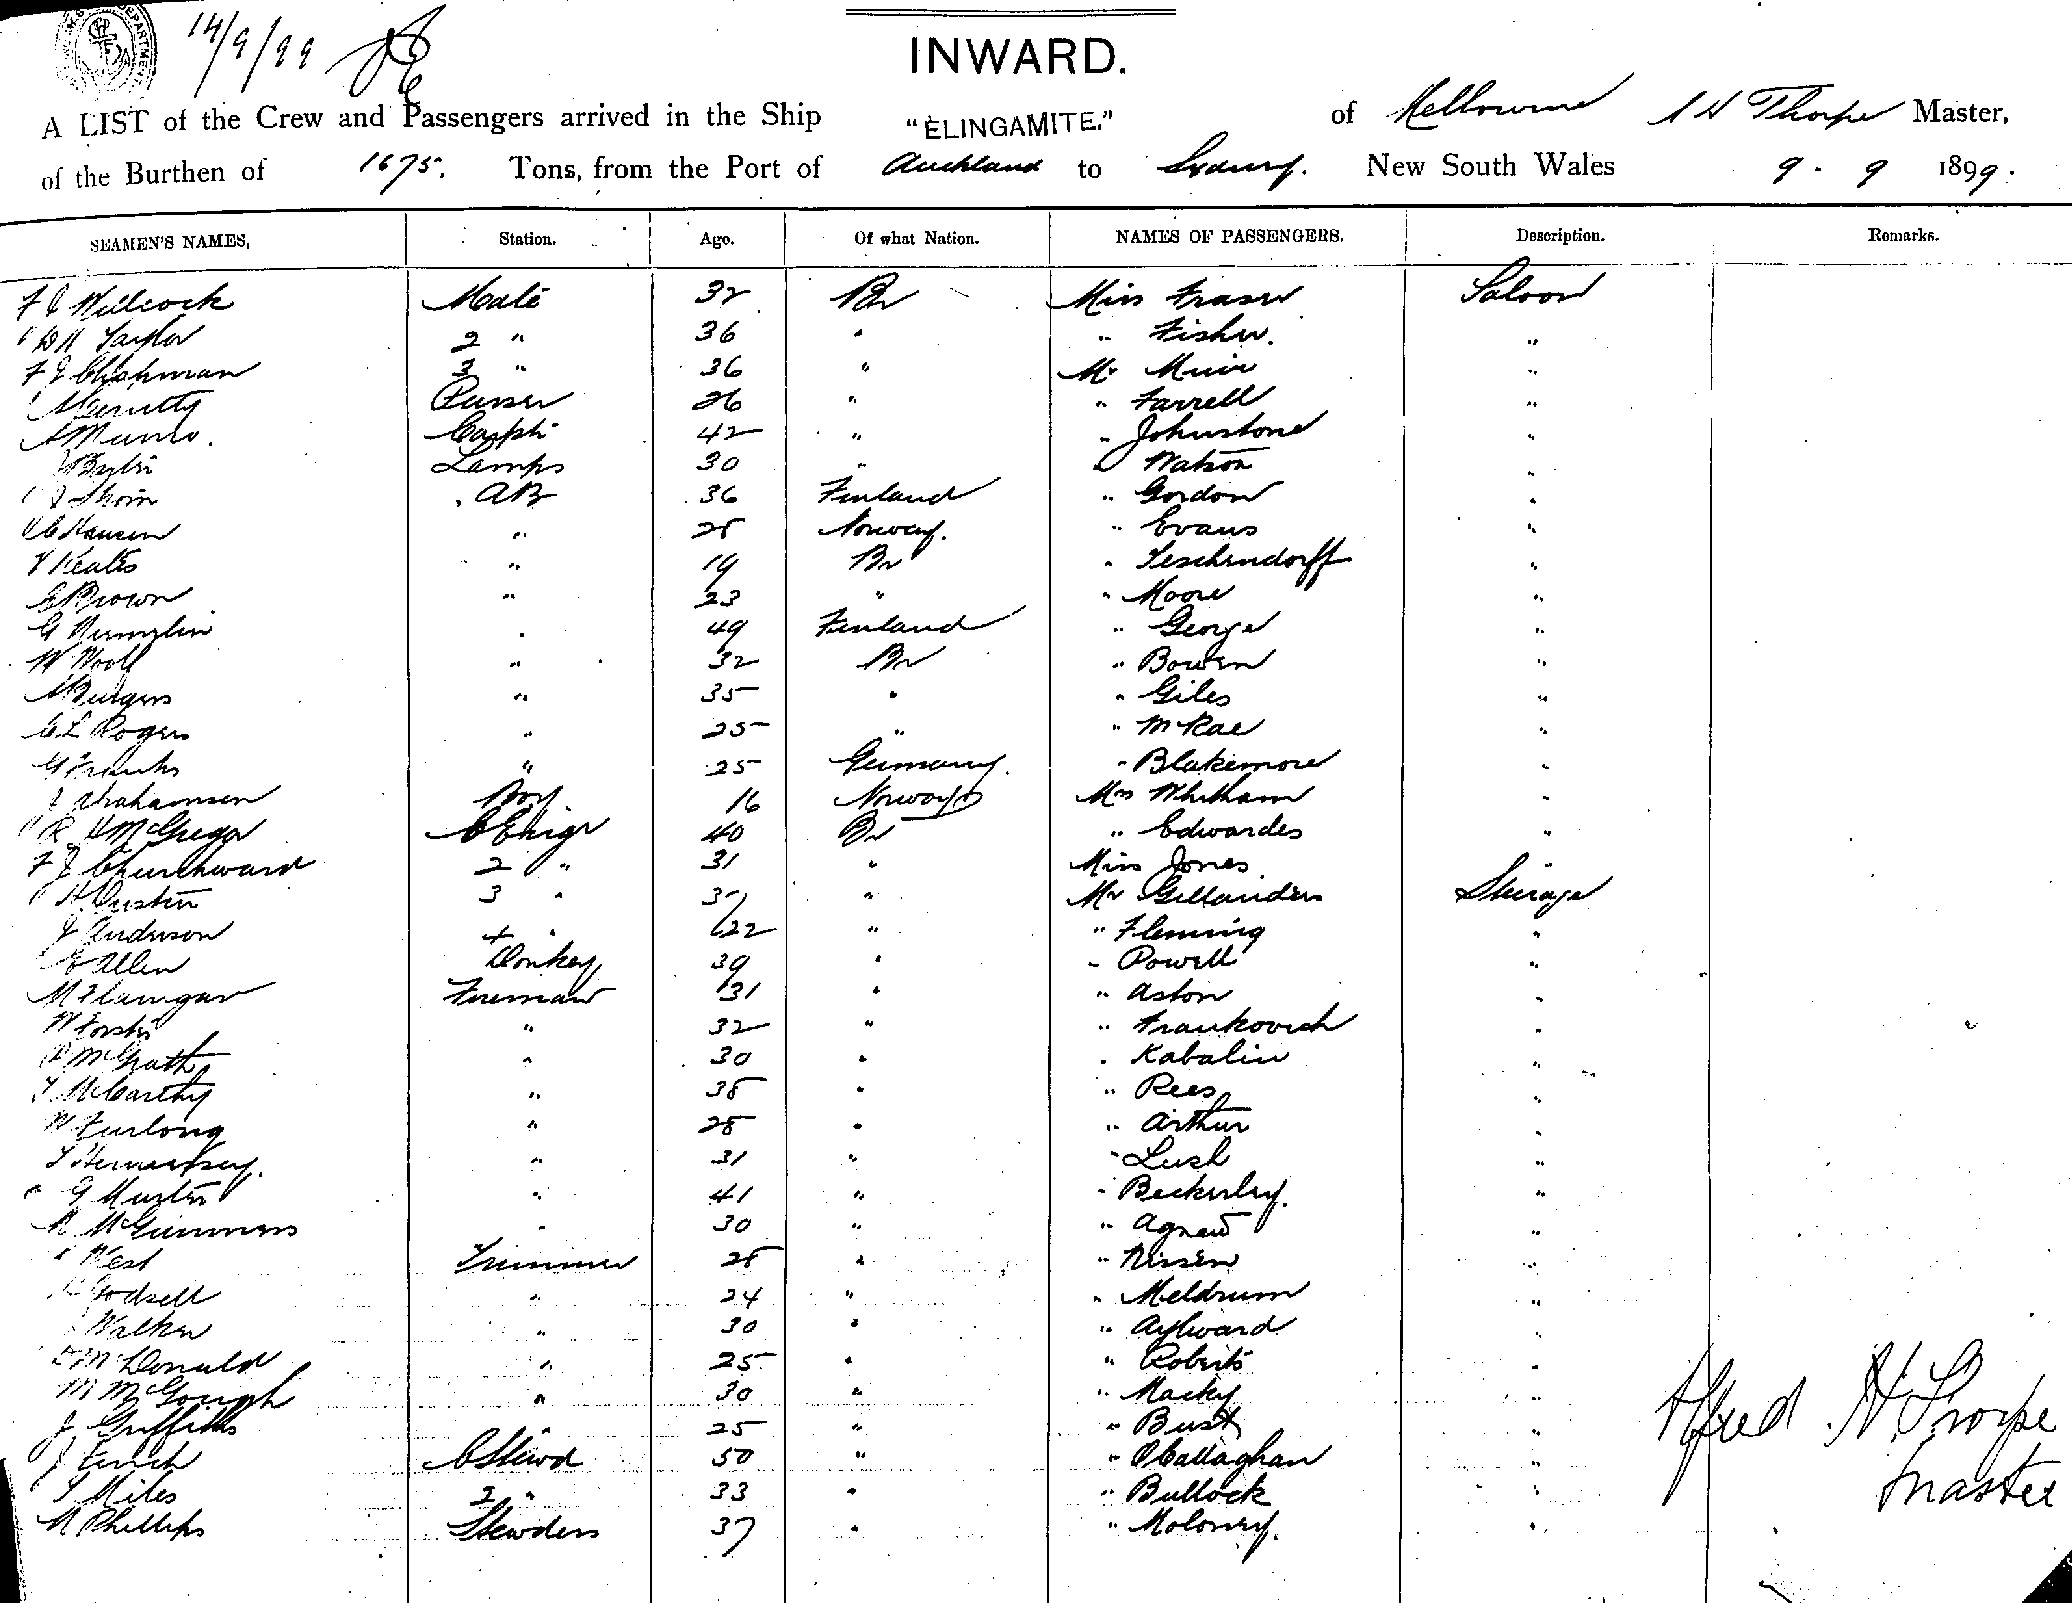 14/9/99
INWARD.
A LIST of the Crew and Passengers arrived in the Ship "ELINGAMITE." of Melbourne A H Thorpe Master,
of the Burthen of 1675. Tons, from the Port of Auckland to Sydney. New South Wales 9 - 9 1899.
SEAMEN'S NAMES, Station. Age. Of what Nation. NAMES OF PASSENGERS. Description. Remarks.
F J Willcock Mate 32 Br Miss Fraser Saloon
Taylor 2 " 36 " " Fisher. "
F J Chapman 3 " 36 " Mr Muir "
Purser 26 " " Farrell "
A Munro. Carptr 42 " " Johnstone "
Lamps 30 " " Watson "
AB 36 Finland " Gordon "
C Hansen " 28 Norway. " Evans "
Keates " 19 Br " Teschendorff "
E Brown " 23 " " Moore "
G " 49 Finland " George "
W Woolf " 32 Br " Bowen "
Burgess " 35 " " Giles "
C L Rogers " 25 " " McRae "
G Franks " 25 Germany. " Blakemore "
J Abrahamsen Boy. 16 Norway Mrs Whitham "
R H McGregor C Engr 40 Br " Edwardes "
F J Churchward 2 " 31 " Miss Jones "
H Dustin 3 " 37 " Mr Gillanders Steerage
J Anderson 4 " 22 " " Fleming "
E Allen Donkey 39 " " Powell "
M Flanigan Fireman 31 " " Aston "
W Forster " 32 " " Frankovich "
McGrath " 30 " " Kabalin "
T McCarthy " 38 " " Rees "
W Furlong " 28 " " Arthur "
T Hennessey. " 31 " " Lush "
G Martin " 41 " " Beckerley. "
" 30 " " Agnew "
West Trimmer 28 " " Nissen "
Godsell " 24 " " Meldrum "
Walker " 30 " " Aylward "
McDonald " 25 " " Roberts "
M McGough " 30 " " Macky "
J Griffiths " 25 " " Bust "
J Finch C Stewd 50 " " OCallaghan "
T Miles 2 " 33 " " Bullock "
M Phillips Stewdess 37 " " Moloney. "
Alfred H Thorpe
Master